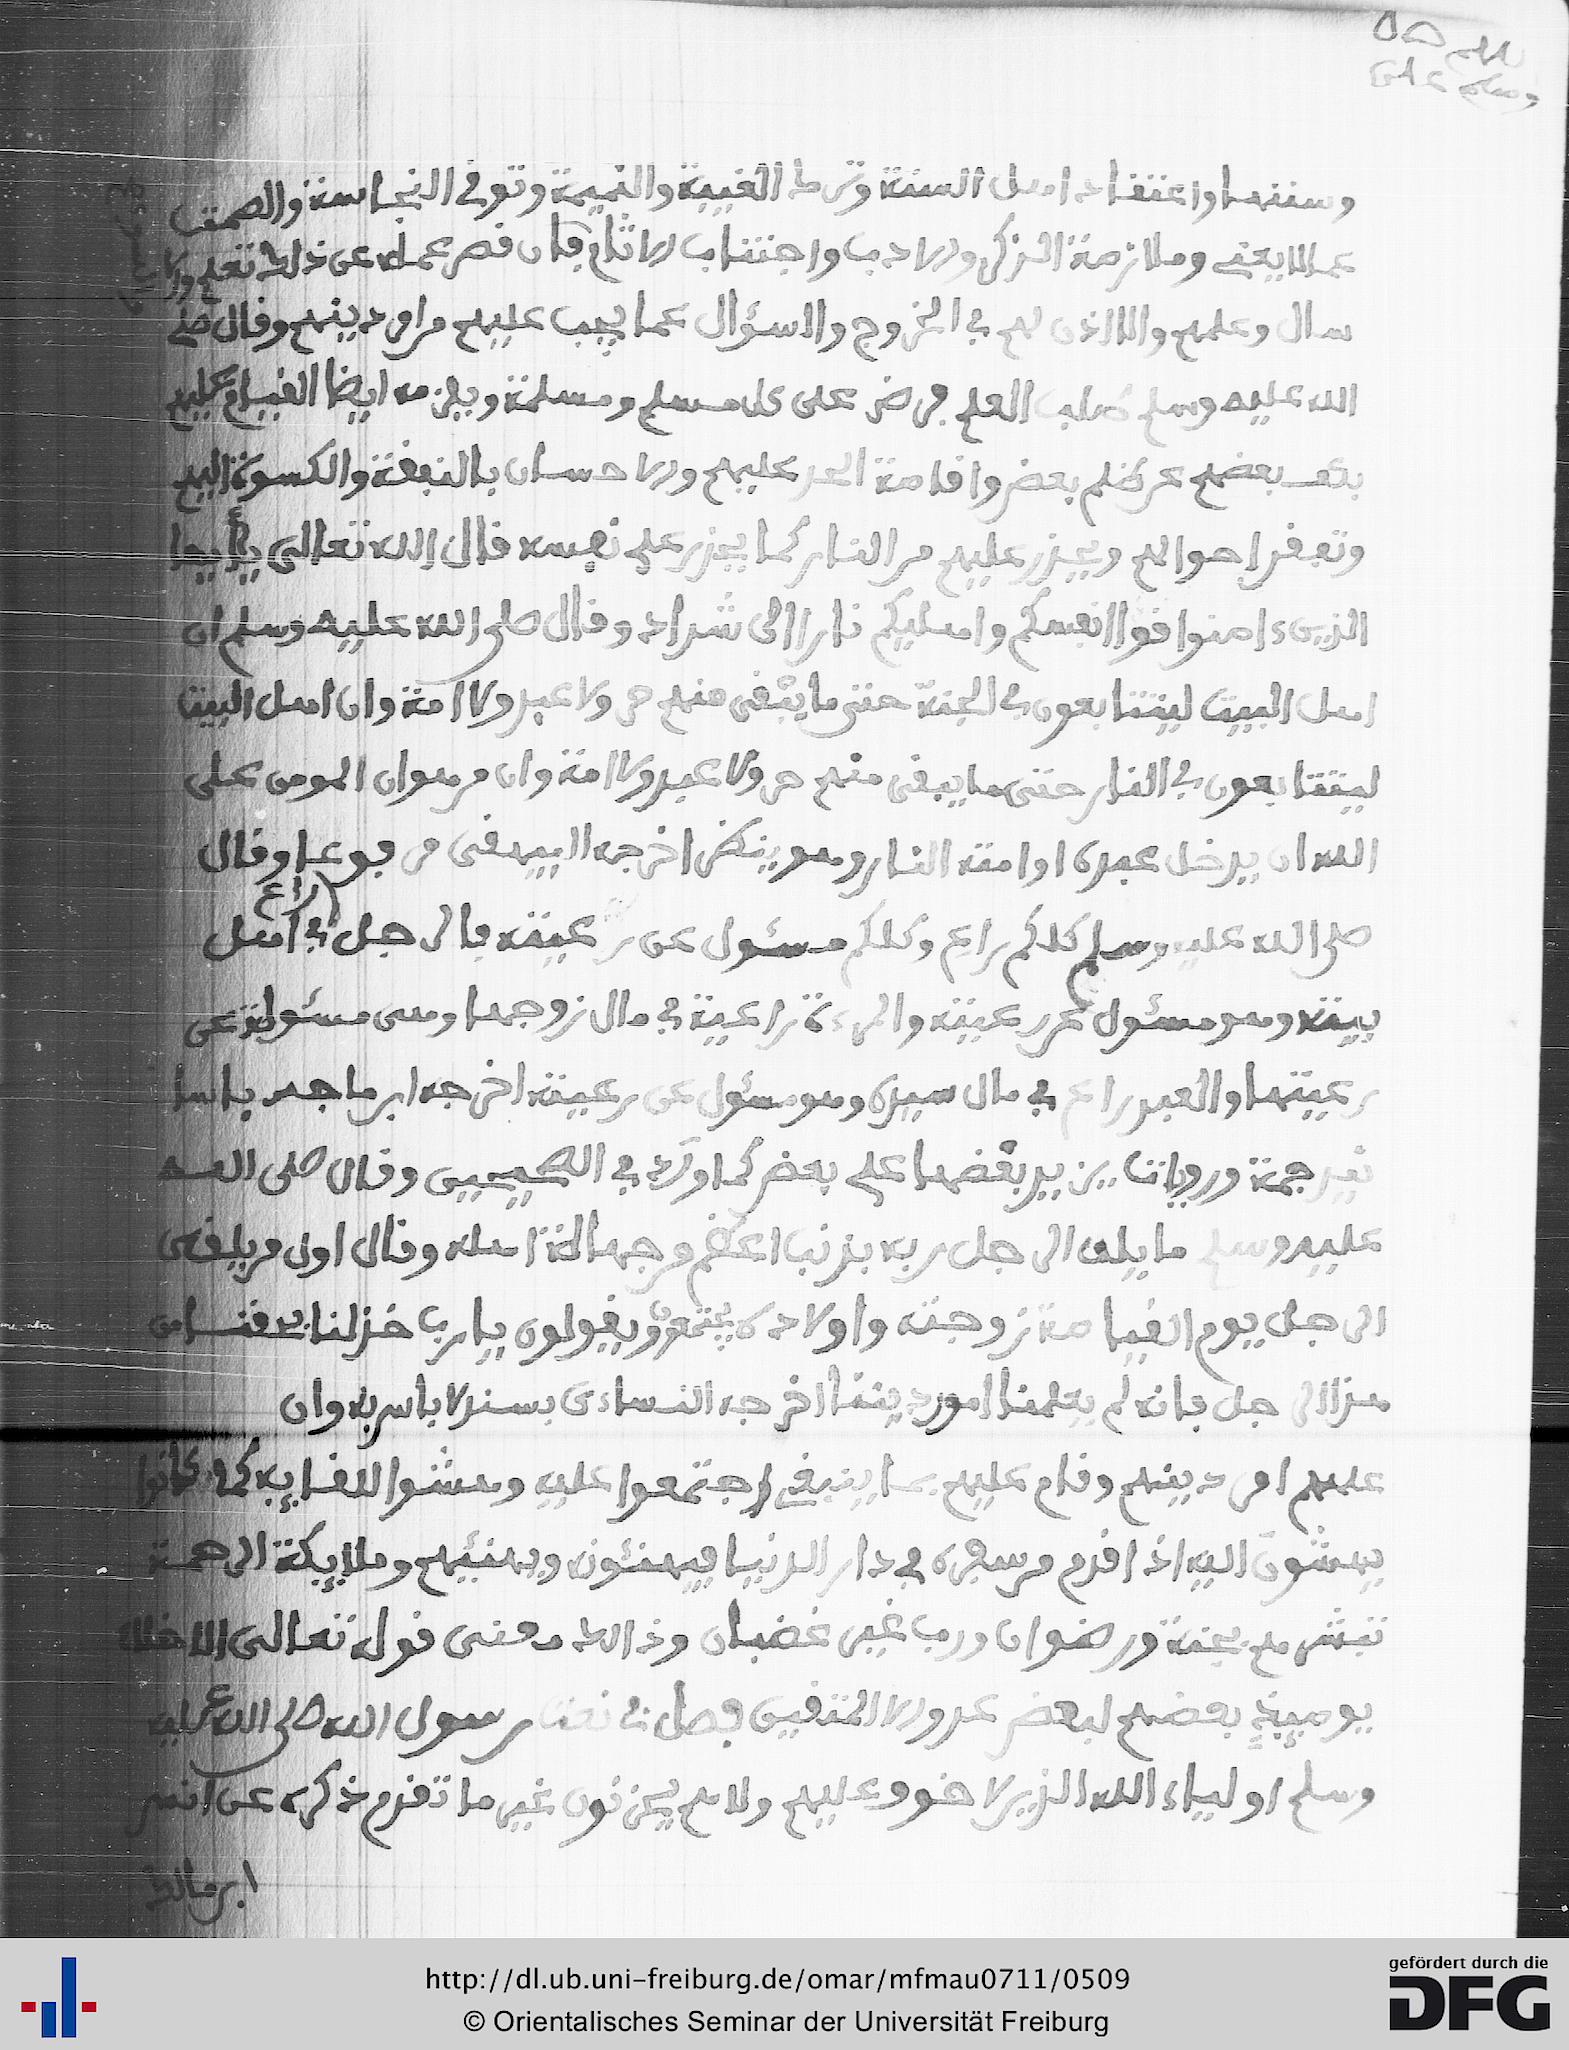 وسننها واعتقاد اهل السنة وترك الغيبة والنميمة وتوفي النجاسة والصمت
عما لا يعني وملازمة الذكر والادب واجتناب الاثام فان قصر عمله عن ذلك تعلم وان
سال وعلمهم والاذن لهم في الخروج والسؤال عما يجب عليهم من امر دينهم وقال صلى
الله عليه وسلم طلب العلم فرض على كل مسلم ومسلمة ويلزمه ايضا القيام عليهم
بكف بعضهم عن ظلم بعض واقامة الحد عليهم والاحسان بالنفقة والكسوة اليهم
وتفقد احوالهم ويحذر عليهم من النار كما يحذر على نفسه قال الله تعالى يأيها
الذين ءامنوا قوا انفسكم واهليكم نارا الى شداد وقال صلى الله عليه وسلم ان
اهل البيت ليتتابعون في الجنة حتى ما يبقى منهم حر ولا عبد ولا امة وان اهل البيت
ليتتابعون في النار حتى ما يبقى منهم حر ولا عبد ولا امة وان من هوان المومن على
الله ان يدخل عبده او امته النار وهو ينظر اخرجه البيهقي مرفوعا وقال
صلى الله عليه وسلم كلكم راع وكلكم مسئول عن رعيته فالرجل راع في اهل
بيته وهو مسئول عن رعيته والمرءة راعية في مال زوجها وهي مسئولة عن
رعيتها والعبد راع في مال سيده وهو مسئول عن رعيته اخرجه ابن ماجه باسا
نيد جمة وروايات يزيد بعضها على بعض كما ورد في الصحيحين وقال صلى الله
عليه وسلم ما يلقى الرجل ربه بذنب اعظم من جهالة اهله وقال اول من يلقى
الرجل يوم القيامة زوجته واولاده يجتمعون ويقولون يا رب خذ لنا بحقنا من
هذا الرجل فانه لم يعلمنا امور ديننا اخرجه النساءي بسند لا باس به وان
علمهم امر دينهم وقام عليهم بما ينبغي اجتمعوا عليه وهشوا للقايه كما كانوا
يهشون اليه اذا قدم من سفره في دار الدنيا فيهنئون ويهنئهم وملايكة الرحمة
تبشرهم بجنة ورضوان ورب غير غضبان وذالك معنى قوله تعالى الاخلاء
يوميذ بعضهم لبعض عدو الا المتقين فصل في نعت رسول الله صلى الله عليه
وسلم اولياء الله الذين لا خوف عليهم ولا هم يحزنون غير ما تقدم ذكره عن انس
ابن مالك
http://dl.ub.uni-freiburg.de/omar/mfmau0711/0509
© Orientalisches Seminar der Universität Freiburg
gefördert durch die
DFG